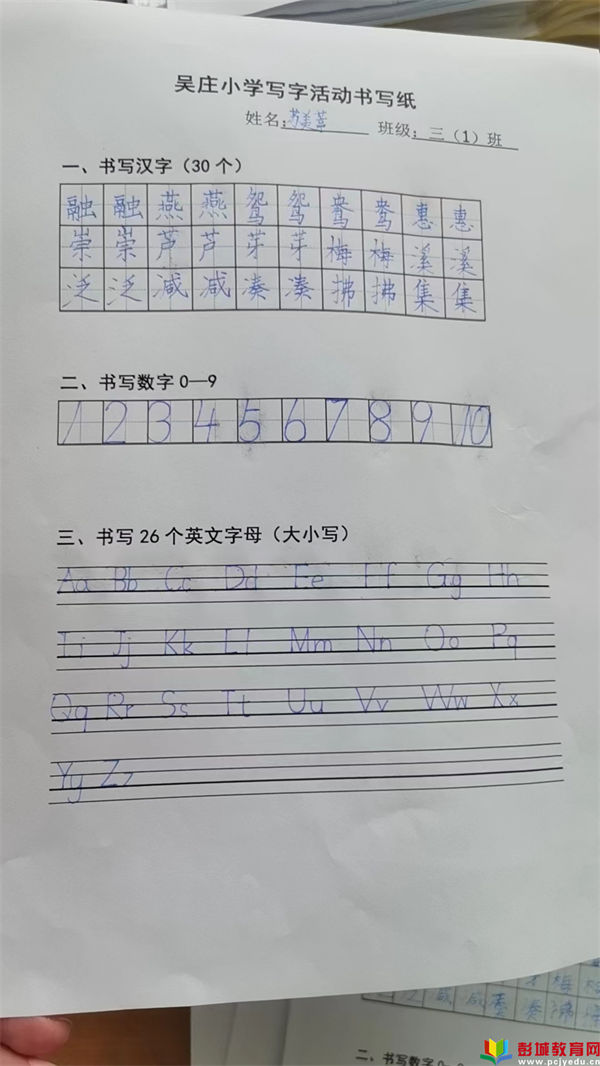 吴庄小学写字活动书写纸
姓名:苏美萍 班级: 三（1）班
一、书写汉字（30个）
融 融 燕 燕 鸳 鸳 鸯 鸯 惠 惠
崇 崇 芦 芦 芽 芽 梅 梅 溪 溪
泛 泛 减 减 凑 凑 拂 拂 集 集
二、书写数字 0—9
1 2 3 4 5 6 7 8 9 10
三、书写 26 个英文字母（大小写）
Aa Bb Cc Dd Ee Ff Gg Hh
Ii Jj Kk Ll Mm Nn Oo Pq
Qq Rr Ss Tt Uu Vv Ww Xx
Yy Zz
减 减 凑 凑
彭城教育网
www.pcjyedu.cn